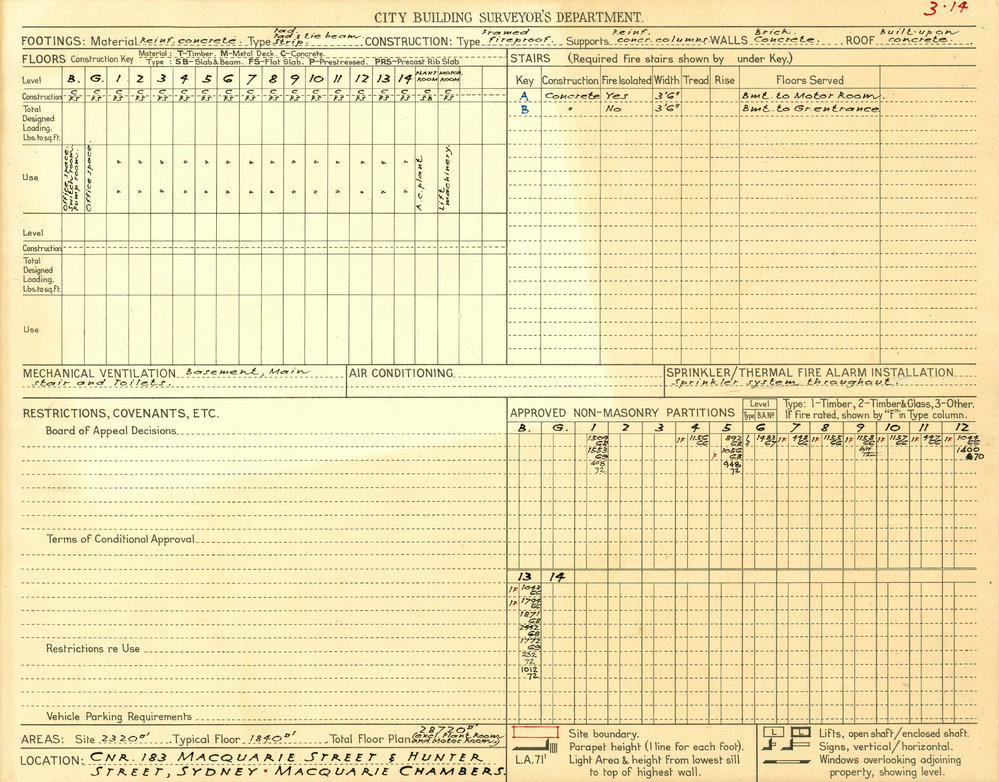 3·14
CITY BUILDING SURVEYOR'S DEPARTMENT.
FOOTINGS: Material Reinf. concrete. Type Pad, Pad & tie beam strip. CONSTRUCTION: Type Framed fireproof. Supports Reinf. concr. columns WALLS Brick. Concrete. ROOF Built-up on concrete.
FLOORS Construction Key Material: T-Timber. M-Metal Deck. C-Concrete.
Type: SB-Slab & Beam. FS-Flat Slab. P-Prestressed. PRS-Precast Rib Slab
Level B. G. 1 2 3 4 5 6 7 8 9 10 11 12 13 14 PLANT ROOM MOTOR ROOM
Construction C FS C FS C FS C FS C FS C FS C FS C FS C FS C FS C FS C FS C FS C FS C FS C FS C SB C FS
Total Designed Loading. Lbs. to sq.ft.
Use Office space. Switch room. Pump room. Office space. " " " " " " " " " " " " " " A.c. plant Lift machinery.
" " " " " " " " " " " " " "
Level
Construction
Total Designed Loading. Lbs. to sq.ft.
Use
STAIRS (Required fire stairs shown by under Key.)
Key Construction Fire Isolated Width Tread Rise Floors Served
A Concrete Yes 3'6" Bmt. to Motor Room.
B " No 3'6" Bmt. to Gr. entrance
MECHANICAL VENTILATION Basement, Main
stair and Toilets.
AIR CONDITIONING
SPRINKLER/THERMAL FIRE ALARM INSTALLATION
Sprinkler system throughout.
RESTRICTIONS, COVENANTS, ETC.
Board of Appeal Decisions
Terms of Conditional Approval
Restrictions re Use
Vehicle Parking Requirements
APPROVED NON-MASONRY PARTITIONS Level Type B.A.No Type: 1-Timber, 2-Timber & Glass, 3-Other.
If fire rated, shown by "F" in Type column.
B. G. 1 2 3 4 5 6 7 8 9 10 11 12
1509 68 1F 1156 66 892 68 1 2 1483 67 1F 448 66 1F 1155 66 1F 1158 66 1F 1157 66 1F 447 66 1044 66
1553 69 F 1056 68 1400 70
408 72 948 72
13 14
1F 1043 66
1F 1794 66
1871 68
2442 68
1772 69
232 72
1012 72
AREAS: Site 2320□' Typical Floor 1840□' Total Floor Plan 28720□' (excl. Plant Room and Motor Room.)
LOCATION: CNR. 183 MACQUARIE STREET & HUNTER
STREET, SYDNEY • MACQUARIE CHAMBERS.
Site boundary.
Parapet height (1 line for each foot).
L.A.71' Light Area & height from lowest sill
to top of highest wall.
L Lifts, open shaft/enclosed shaft.
Signs, vertical/horizontal.
Windows overlooking adjoining
property, showing level.